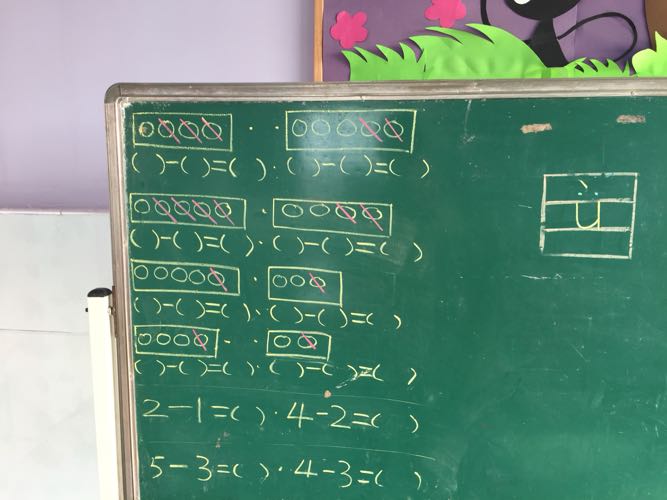 ( )-( )=( ) · ( )-( )=( )
( )-( )=( ) · ( )-( )=( )
( )-( )=( ) · ( )-( )=( )
( )-( )=( ) · ( )-( )=( )
2-1=( ) · 4-2=( )
5-3=( ) · 4-3=( )
ǜ